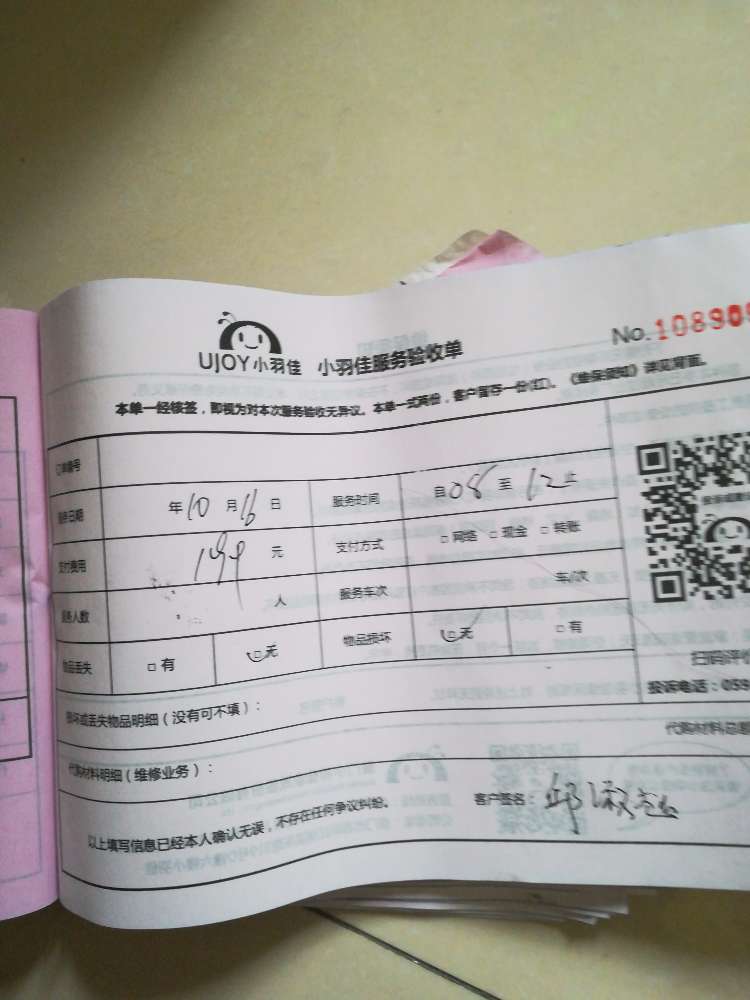 UJOY小羽佳 小羽佳服务验收单
No. 108909
本单一经核签，即视为对本次服务验收无异议。本单一式两份，客户留存一份(红)。《维保须知》详见背面。
订单编号
服务日期 年10月16日 服务时间 自08至12止
支付费用 199元 支付方式 □网络 □现金 □转账
服务人数 人 服务车次 车/次
物品丢失 □有 □无 物品损坏 □无 □有
扫码评价
投诉电话：059
损坏或丢失物品明细（没有可不填）：
代购材料总
代购材料明细（维修业务）：
以上填写信息已经本人确认无误，不存在任何争议纠纷。 客户签名：邱淑